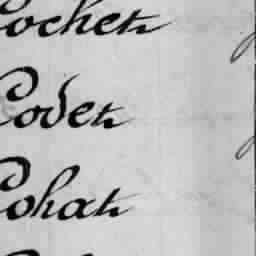 Cochet
Codet
Cohat